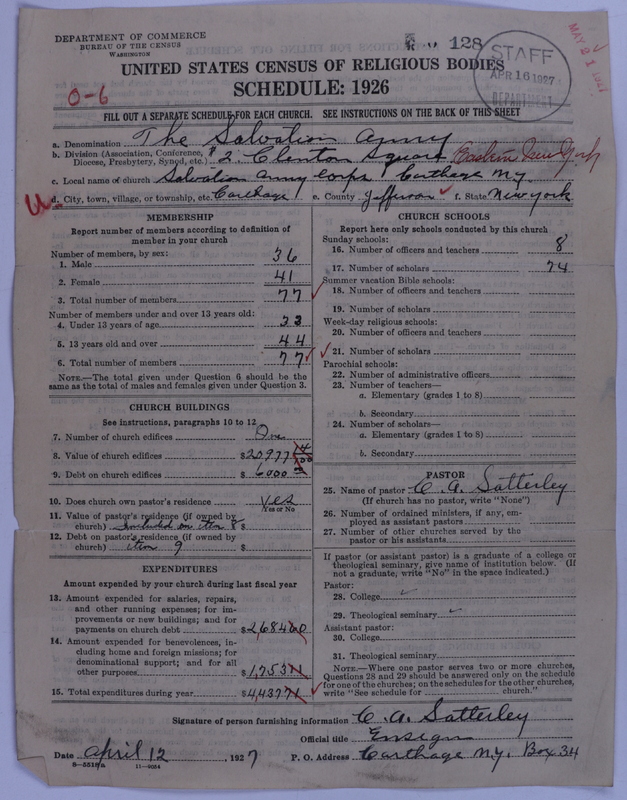 DEPARTMENT OF COMMERCE
BUREAU OF THE CENSUS
WASHINGTON
128
STAFF
APR 16 1927
DEPARTMENT
MAY 21 1927
UNITED STATES CENSUS OF RELIGIOUS BODIES
SCHEDULE: 1926
0-6
FILL OUT A SEPARATE SCHEDULE FOR EACH CHURCH. SEE INSTRUCTIONS ON THE BACK OF THIS SHEET
a. Denomination The Salvation Army
b. Division (Association, Conference, Diocese, Presbytery, Synod, etc.) #2 Clinton Square Eastern New York
c. Local name of church Salvation Army Corps Carthage NY
d. City, town, village, or township, etc. Carthage e. County Jefferson f. State New York
MEMBERSHIP
Report number of members according to definition of
member in your church
Number of members, by sex:
1. Male 36
2. Female 41
3. Total number of members 77
Number of members under and over 13 years old:
4. Under 13 years of age 33
5. 13 years old and over 44
6. Total number of members 77
NOTE.—The total given under Question 6 should be the
same as the total of males and females given under Question 3.
CHURCH BUILDINGS
See instructions, paragraphs 10 to 12
7. Number of church edifices One
8. Value of church edifices $20977
9. Debt on church edifices $6000
10. Does church own pastor's residence Yes
Yes or No
11. Value of pastor's residence (if owned by
church) Included on item 8 $
12. Debt on pastor's residence (if owned by
church) item 9 $
EXPENDITURES
Amount expended by your church during last fiscal year
13. Amount expended for salaries, repairs,
and other running expenses; for im-
provements or new buildings; and for
payments on church debt $2,684.60
14. Amount expended for benevolences, in-
cluding home and foreign missions; for
denominational support; and for all
other purposes $1,753.11
15. Total expenditures during year $4,437.71
CHURCH SCHOOLS
Report here only schools conducted by this church
Sunday schools:
16. Number of officers and teachers 8
17. Number of scholars 74
Summer vacation Bible schools:
18. Number of officers and teachers
19. Number of scholars
Week-day religious schools:
20. Number of officers and teachers
21. Number of scholars
Parochial schools:
22. Number of administrative officers
23. Number of teachers—
a. Elementary (grades 1 to 8)
b. Secondary
24. Number of scholars—
a. Elementary (grades 1 to 8)
b. Secondary
PASTOR
25. Name of pastor C. A. Satterley
(If church has no pastor, write "None")
26. Number of ordained ministers, if any, em-
ployed as assistant pastors
27. Number of other churches served by the
pastor or his assistants
If pastor (or assistant pastor) is a graduate of a college or
theological seminary, give name of institution below. (If
not a graduate, write "No" in the space indicated.)
Pastor:
28. College
29. Theological seminary
Assistant pastor:
30. College
31. Theological seminary
NOTE.—Where one pastor serves two or more churches,
Questions 28 and 29 should be answered only on the schedule
for one of the churches; on the schedules for the other churches,
write "See schedule for church."
Signature of person furnishing information C. A. Satterley
Official title Ensign
Date April 12, 1927 P. O. Address Carthage N.Y. Box 34
8—5518a 11—9054